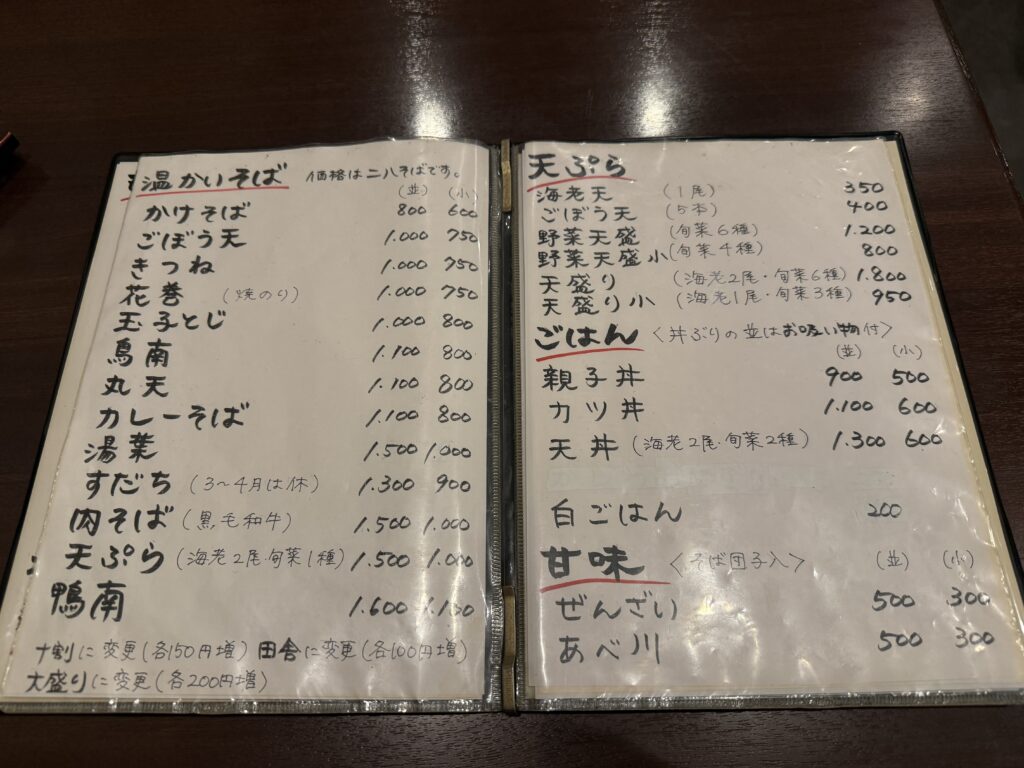 温かいそば 価格は二八そばです。
(並) (小)
かけそば 800 600
ごぼう天 1.000 750
きつね 1.000 750
花巻 (焼のり) 1.000 750
玉子とじ 1.000 800
鳥南 1.100 800
丸天 1.100 800
カレーそば 1.100 800
湯葉 1.500 1.000
すだち (3〜4月は休) 1.300 900
肉そば (黒毛和牛) 1.500 1.000
天ぷら (海老2尾・旬菜1種) 1.500 1.000
鴨南 1.600 1.100
十割に変更(各150円増) 田舎に変更(各100円増)
大盛りに変更(各200円増)
天ぷら
海老天 (1尾) 350
ごぼう天 (5本) 400
野菜天盛 (旬菜6種) 1.200
野菜天盛小 (旬菜4種) 800
天盛り (海老2尾・旬菜6種) 1.800
天盛り小 (海老1尾・旬菜3種) 950
ごはん <丼ぶりの並はお吸い物付>
(並) (小)
親子丼 900 500
カツ丼 1.100 600
天丼 (海老2尾・旬菜2種) 1.300 600
白ごはん 200
甘味 <そば団子入> (並) (小)
ぜんざい 500 300
あべ川 500 300